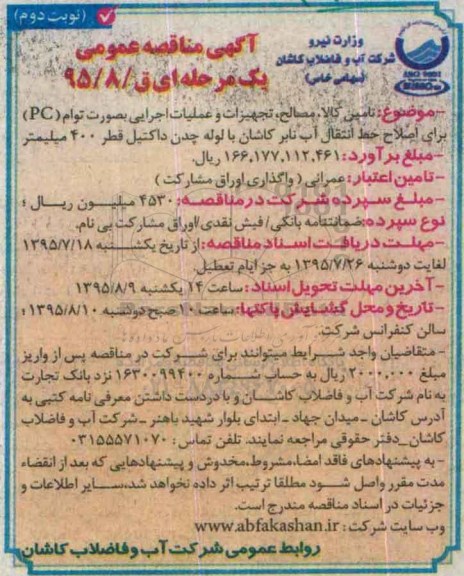 (نوبت دوم)
وزارت نیرو
شرکت آب و فاضلاب کاشان
(سهامی خاص)
آگهی مناقصه عمومی
یک مرحله ای ق/۹۵/۸
ISO 9001
-موضوع: تامین کالا، مصالح، تجهیزات و عملیات اجرایی بصورت توام (PC)
برای اصلاح خط انتقال آب نابر کاشان با لوله چدن داکتیل قطر ۴۰۰ میلیمتر
-مبلغ برآورد: ۱۶۶,۱۷۷,۱۱۲,۴۶۱ ریال.
-تامین اعتبار: عمرانی (واگذاری اوراق مشارکت)
-مبلغ سپرده شرکت در مناقصه: ۴۵۳۰ میلیون ریال ؛
نوع سپرده: ضمانتنامه بانکی/ فیش نقدی/اوراق مشارکت بی نام.
-مهلت دریافت اسناد مناقصه: از تاریخ یکشنبه ۱۳۹۵/۷/۱۸
لغایت دوشنبه ۱۳۹۵/۷/۲۶ به جز ایام تعطیل.
-آخرین مهلت تحویل اسناد: ساعت ۱۴ یکشنبه ۱۳۹۵/۸/۹
-تاریخ و محل گشایش پاکتها: ساعت ۱۰ صبح دوشنبه ۱۳۹۵/۸/۱۰ ؛
سالن کنفرانس شرکت.
- متقاضیان واجد شرایط میتوانند برای شرکت در مناقصه پس از واریز
مبلغ ۲۰۰۰,۰۰۰ ریال به حساب شماره ۱۶۳۰۰۹۹۴۰۰ نزد بانک تجارت
به نام شرکت آب و فاضلاب کاشان و با دردست داشتن معرفی نامه کتبی به
آدرس کاشان - میدان جهاد - ابتدای بلوار شهید باهنر - شرکت آب و فاضلاب
کاشان - دفتر حقوقی مراجعه نمایند. تلفن تماس: ۰۳۱۵۵۵۷۱۰۷۰
- به پیشنهادهای فاقد امضا، مشروط، مخدوش و پیشنهادهایی که بعد از انقضاء
مدت مقرر واصل شود مطلقا ترتیب اثر داده نخواهد شد، سایر اطلاعات و
جزئیات در اسناد مناقصه مندرج است.
وب سایت شرکت: www.abfakashan.ir
روابط عمومی شرکت آب و فاضلاب کاشان